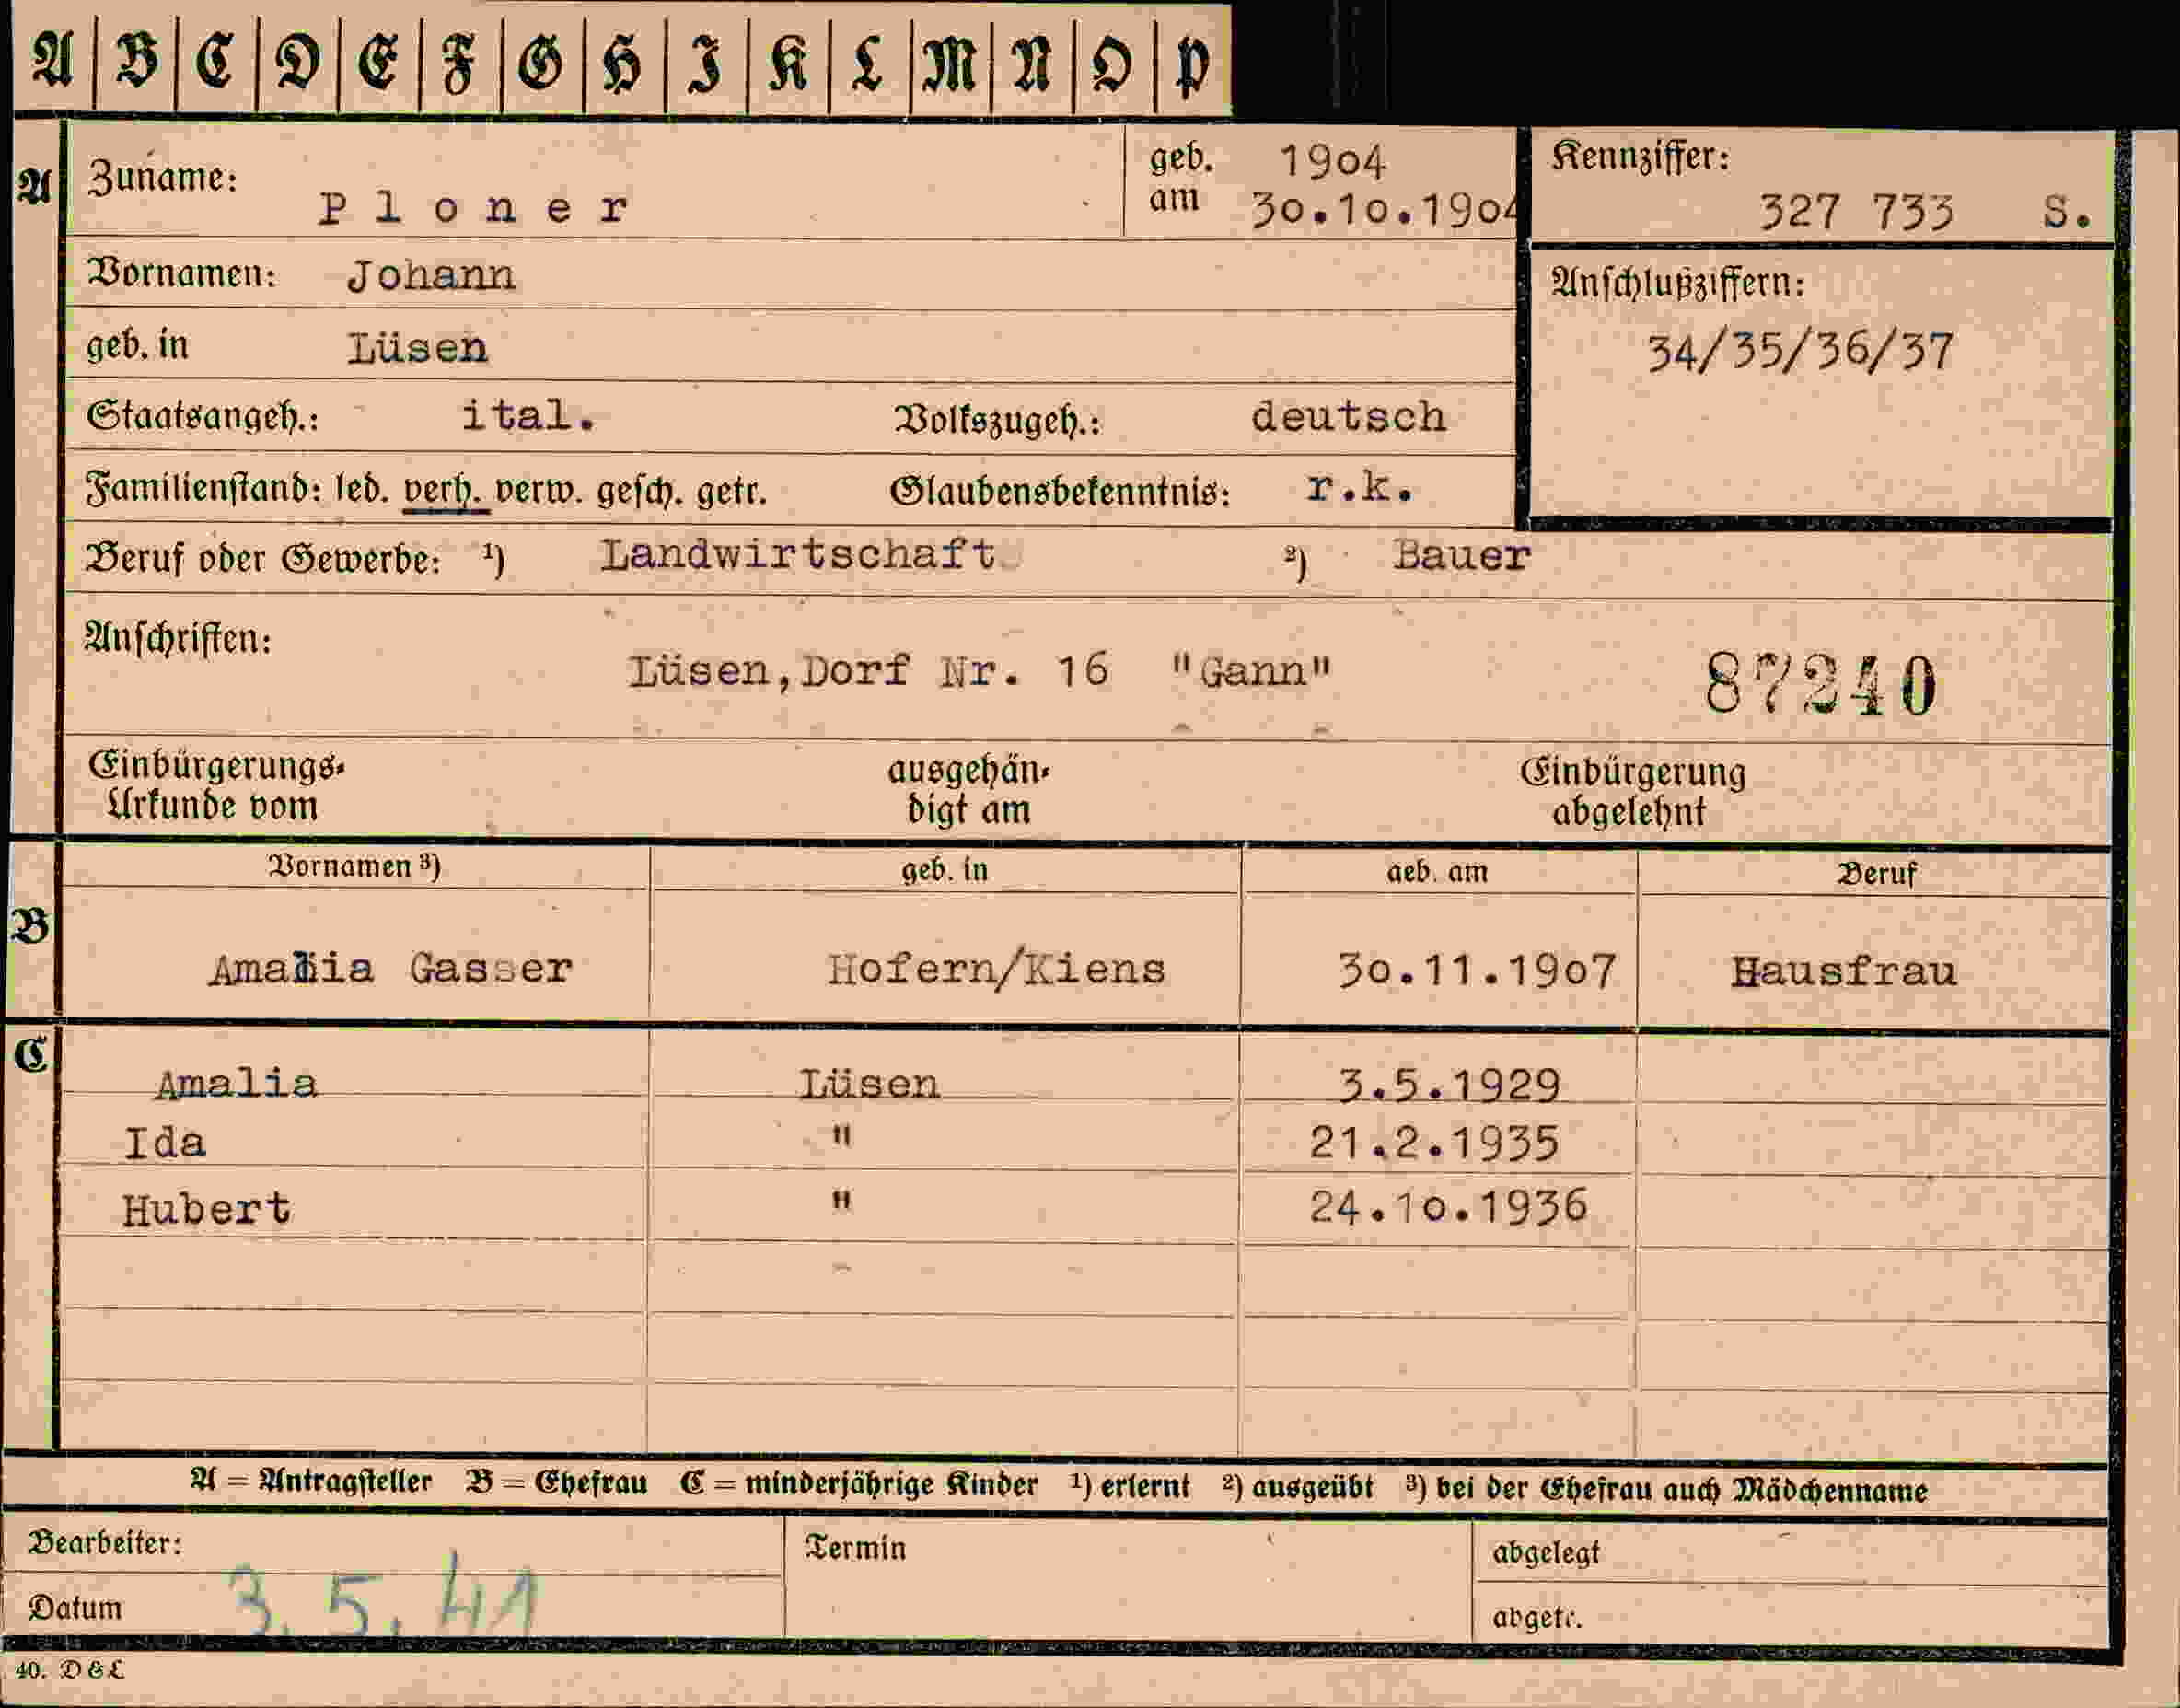 A B C D E F G H I K L M N O P
A Zuname: Ploner geb. am 1904 30.10.1904 Kennziffer: 327 733 S.
Vornamen: Johann Anschlußziffern:
geb. in Lüsen 34/35/36/37
Staatsangeh.: ital. Volkszugeh.: deutsch
Familienstand: led. verh. verw. gesch. getr. Glaubensbekenntnis: r.k.
Beruf oder Gewerbe: 1) Landwirtschaft 2) Bauer
Anschriften:
Lüsen,Dorf Nr. 16 "Gann" 87240
Einbürgerungs- ausgehän- Einbürgerung
Urkunde vom digt am abgelehnt
Vornamen 3) geb. in geb. am Beruf
B Amalia Gasser Hofern/Kiens 30.11.1907 Hausfrau
C Amalia Lüsen 3.5.1929
Ida " 21.2.1935
Hubert " 24.10.1936
A = Antragsteller B = Ehefrau C = minderjährige Kinder 1) erlernt 2) ausgeübt 3) bei der Ehefrau auch Mädchenname
Bearbeiter: Termin abgelegt
Datum 3.5.41 abgetr.
40. D & L